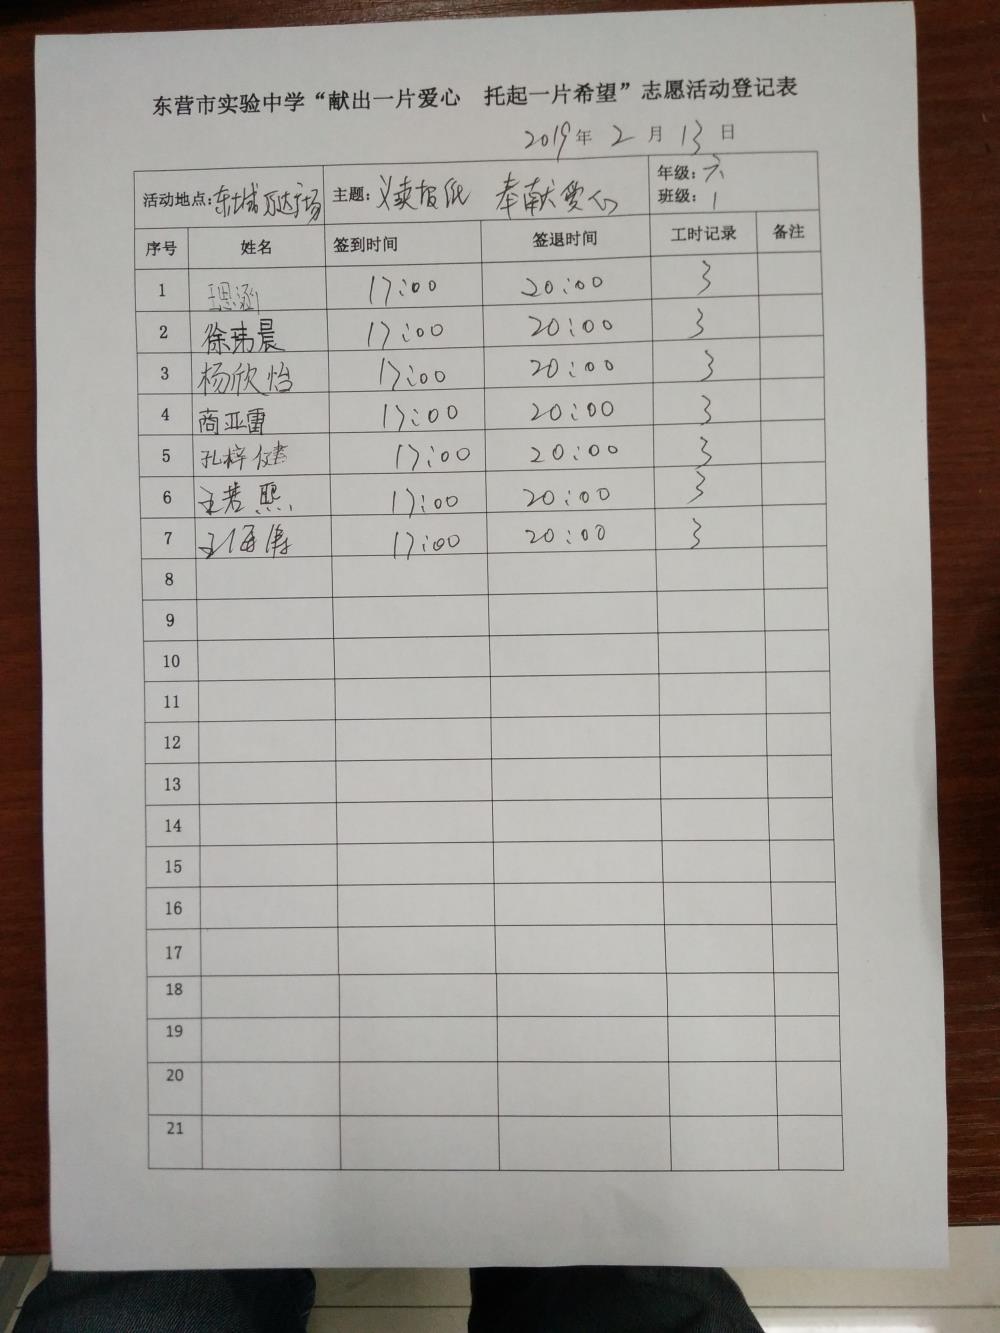 东营市实验中学“献出一片爱心 托起一片希望”志愿活动登记表
2019年 2 月 13 日
活动地点:东城万达广场 主题:义卖报纸 奉献爱心 年级:六
班级:1
序号 姓名 签到时间 签退时间 工时记录 备注
1 王思涵 17:00 20:00 3
2 徐玮晨 17:00 20:00 3
3 杨欣怡 17:00 20:00 3
4 商亚雷 17:00 20:00 3
5 孔梓健 17:00 20:00 3
6 王若熙 17:00 20:00 3
7 王海涛 17:00 20:00 3
8
9
10
11
12
13
14
15
16
17
18
19
20
21